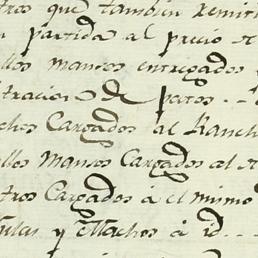 tros que tambien remiti
partida al precio de
llos mansos entregados
tracion de potros
chos Cargados al Ranch
llos mansos Cargados al
tros Cargados á el mismo
Mulas y Machos á id